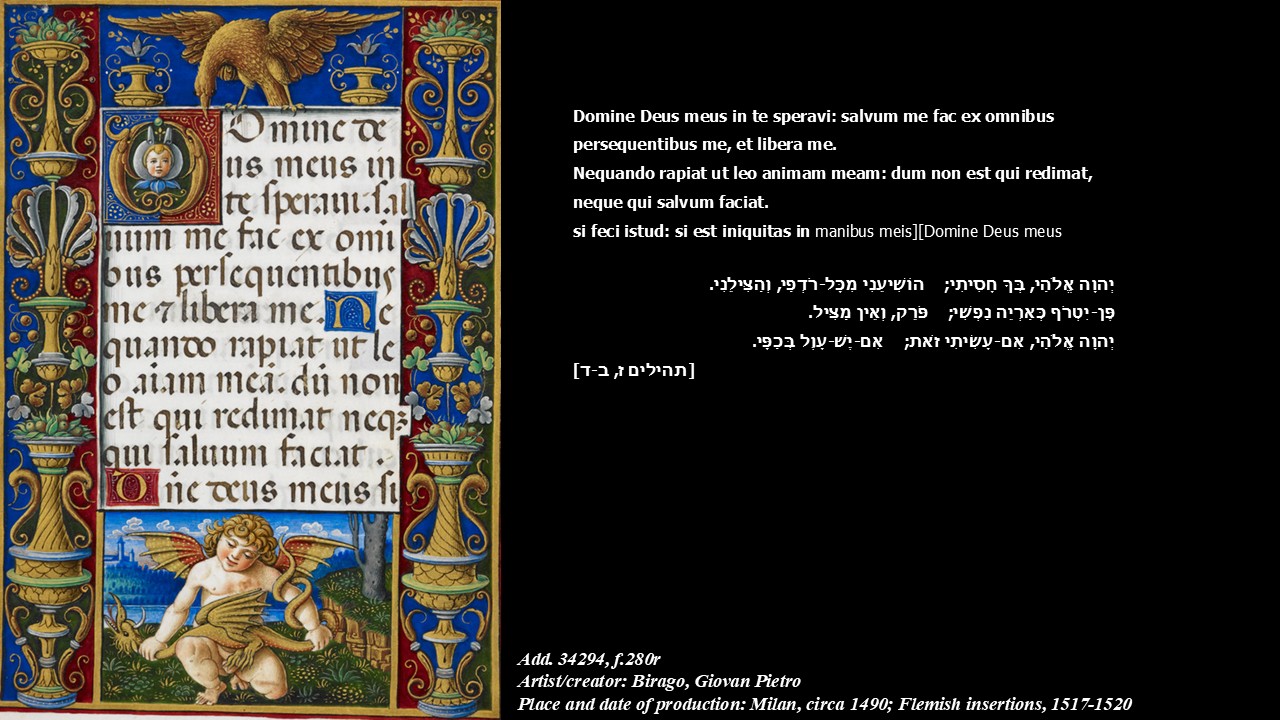 Domine de
us meus in
te speraui. sal
uum me fac ex omi
bus persequentibus
me ⁊ libera me. Ne
quando rapiat ut le
o aiam meā: dū non
est qui redimat neqꝫ
qui saluum faciat .
Dñe deus meus si
Domine Deus meus in te speravi: salvum me fac ex omnibus
persequentibus me, et libera me.
Nequando rapiat ut leo animam meam: dum non est qui redimat,
neque qui salvum faciat.
si feci istud: si est iniquitas in manibus meis][Domine Deus meus
יְהוָה אֱלֹהַי, בְּךָ חָסִיתִי; הוֹשִׁיעֵנִי מִכָּל-רֹדְפַי, וְהַצִּילֵנִי.
פֶּן-יִטְרֹף כְּאַרְיֵה נַפְשִׁי; פֹּרֵק, וְאֵין מַצִּיל.
יְהוָה אֱלֹהַי, אִם-עָשִׂיתִי זֹאת; אִם-יֶשׁ-עָוֶל בְּכַפָּי.
[תהילים ז, ב-ד]
Add. 34294, f.280r
Artist/creator: Birago, Giovan Pietro
Place and date of production: Milan, circa 1490; Flemish insertions, 1517-1520